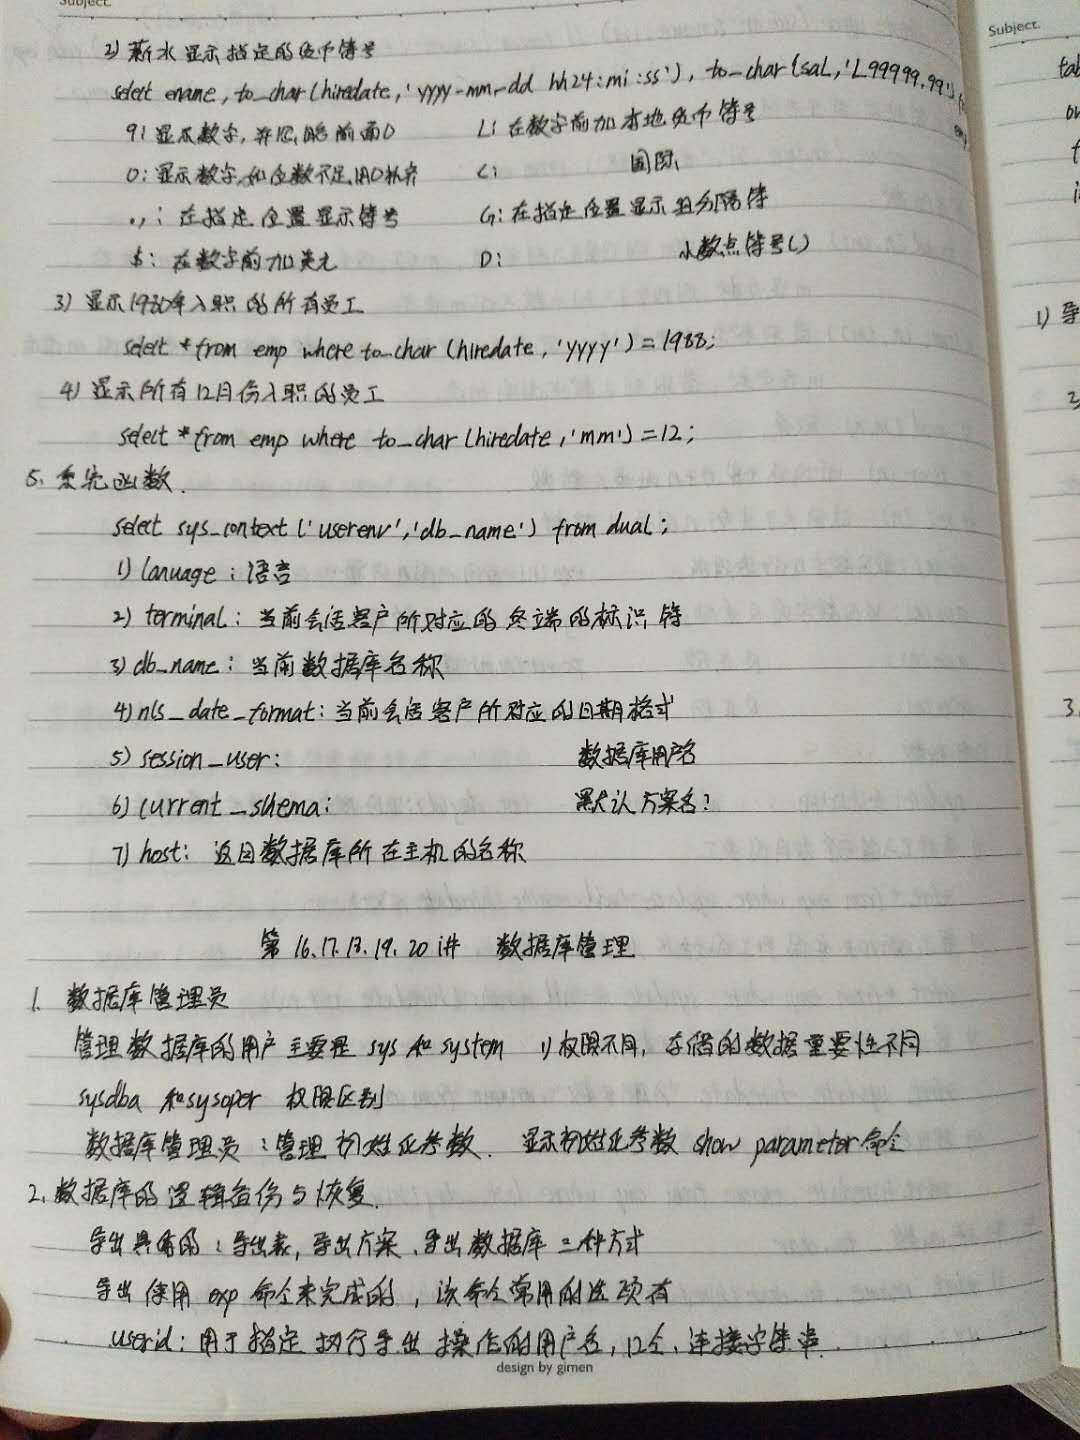 Subject.
2) 薪水显示指定的货币符号
select ename, to_char(hiredate,'yyyy-mm-dd hh24:mi:ss'), to_char(sal,'L99999.99')
9: 显示数字,并忽略前面0 L: 在数字前加本地货币符号
0: 显示数字,如位数不足,用0补齐 C: 国际
.,: 在指定位置显示符号 G: 在指定位置显示组分隔符
$: 在数字前加美元 D: 小数点符号(.)
3) 显示1980年入职的所有员工
select * from emp where to_char(hiredate,'yyyy')=1988;
4) 显示所有12月份入职的员工
select * from emp where to_char(hiredate,'mm')=12;
5. 系统函数.
select sys_context('userenv','db_name') from dual;
1) lanuage: 语言
2) terminal: 当前会话客户所对应的终端的标识符
3) db_name: 当前数据库名称
4) nls_date_format: 当前会话客户所对应的日期格式
5) session_user: 数据库用户名
6) current_schema: 默认方案名?
7) host: 返回数据库所在主机的名称
第16.17.18.19.20讲 数据库管理
1. 数据库管理员
管理数据库的用户主要是 sys 和 system 1) 权限不同, 存储的数据重要性不同
sysdba 和 sysoper 权限区别
数据库管理员: 管理初始化参数. 显示初始化参数 show parameter 命令
2. 数据库的逻辑备份与恢复.
导出具体的: 导出表, 导出方案, 导出数据库 三种方式
导出使用 exp 命令来完成的, 该命令常用的选项有
userid: 用于指定执行导出操作的用户名, 口令, 连接字符串.
design by gimen
Subject.
1) 导
3.